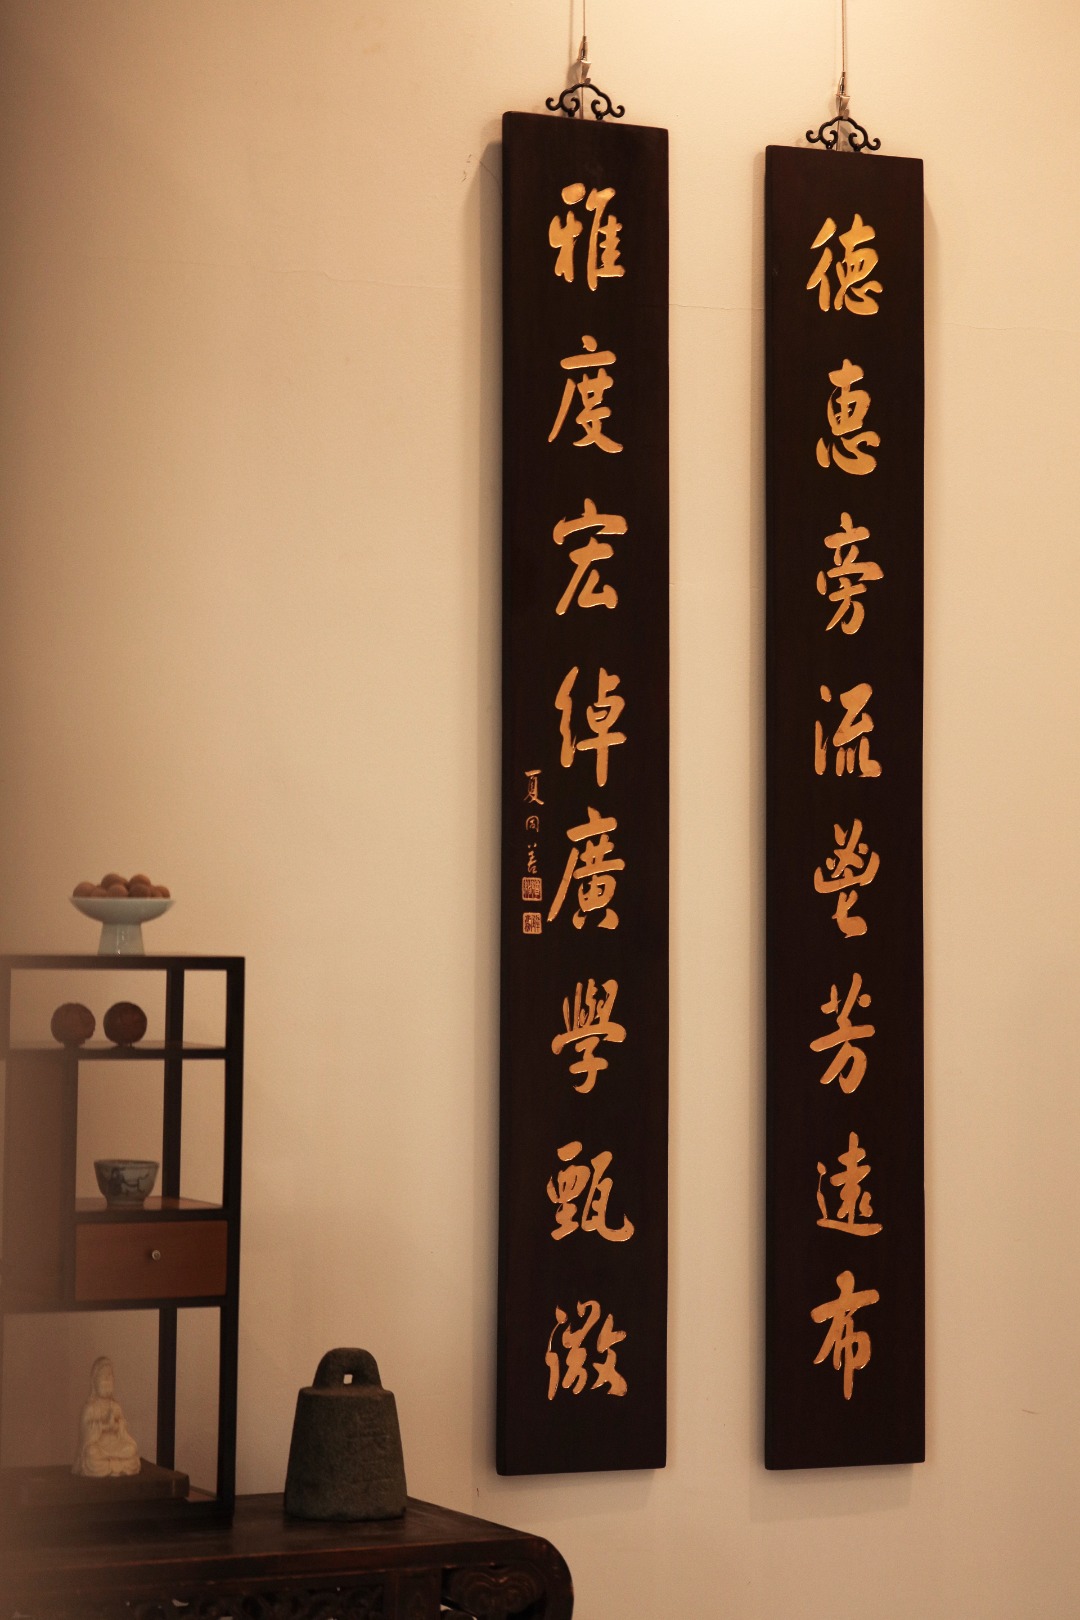 德惠旁流蜚芳遠布
雅度宏綽廣學甄微
夏同善